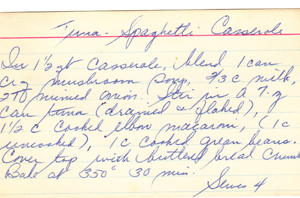 Tuna - Spaghetti Casserole
In 1 1/2 qt Casserole, blend 1 can
cr of mushroom soup, 1/3 c milk,
2 TB minced onion. Stir in a 7 oz
can tuna (drained & flaked),
1 1/2 c cooked elbow macaroni, (1 c
uncooked), 1 c cooked green beans.
Cover top with buttered bread crumbs
Bake at 350° 30 min.
Serves 4